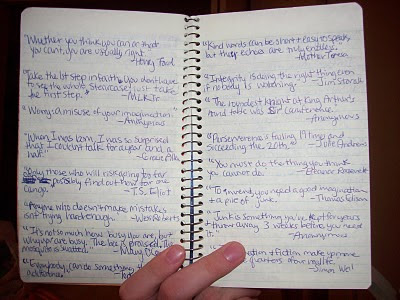 "Whether you think you can or that
you can't, you are usually right."
~Henry Ford
"Take the 1st step in faith. You don't have
to see the whole staircase, just take
the first step." ~MLK Jr
"Worry is a misuse of your imagination."
~Anonymous
"When I was born, I was so surprised
that I couldn't talk for a year and a
half." ~Gracie Allen
Only those who will risk going too far
can possibly find out how far one
can go." ~T.S. Eliot
"Anyone who doesn't make mistakes
isn't trying hard enough." ~Wess Roberts
"It's not so much how busy you are, but
why you are busy. The bee is praised. The
mosquito is swatted." ~Mary O'C
"Everybody can be
"Kind words can be short + easy to speak
but their echoes are truly endless."
~Mother Teresa
"Integrity is doing the right thing even
if nobody is watching." ~Jim Stovall
"The roundest knight at King Arthur's
round table was Sir Cumference."
~Anonymous
"Perserverence is failing 19 times and
succeeding the 20th." ~Julie Andrews
"You must do the thing you think
you cannot do." ~Eleanor Roosevelt
"To invent, you need a good imagination
+ a pile of junk." ~Thomas Edison
"Junk is something you've kept for years +
throw away 3 weeks before you need
it." ~Anonymous
fiction make up more
quarters of our real life."
~Simone Weil